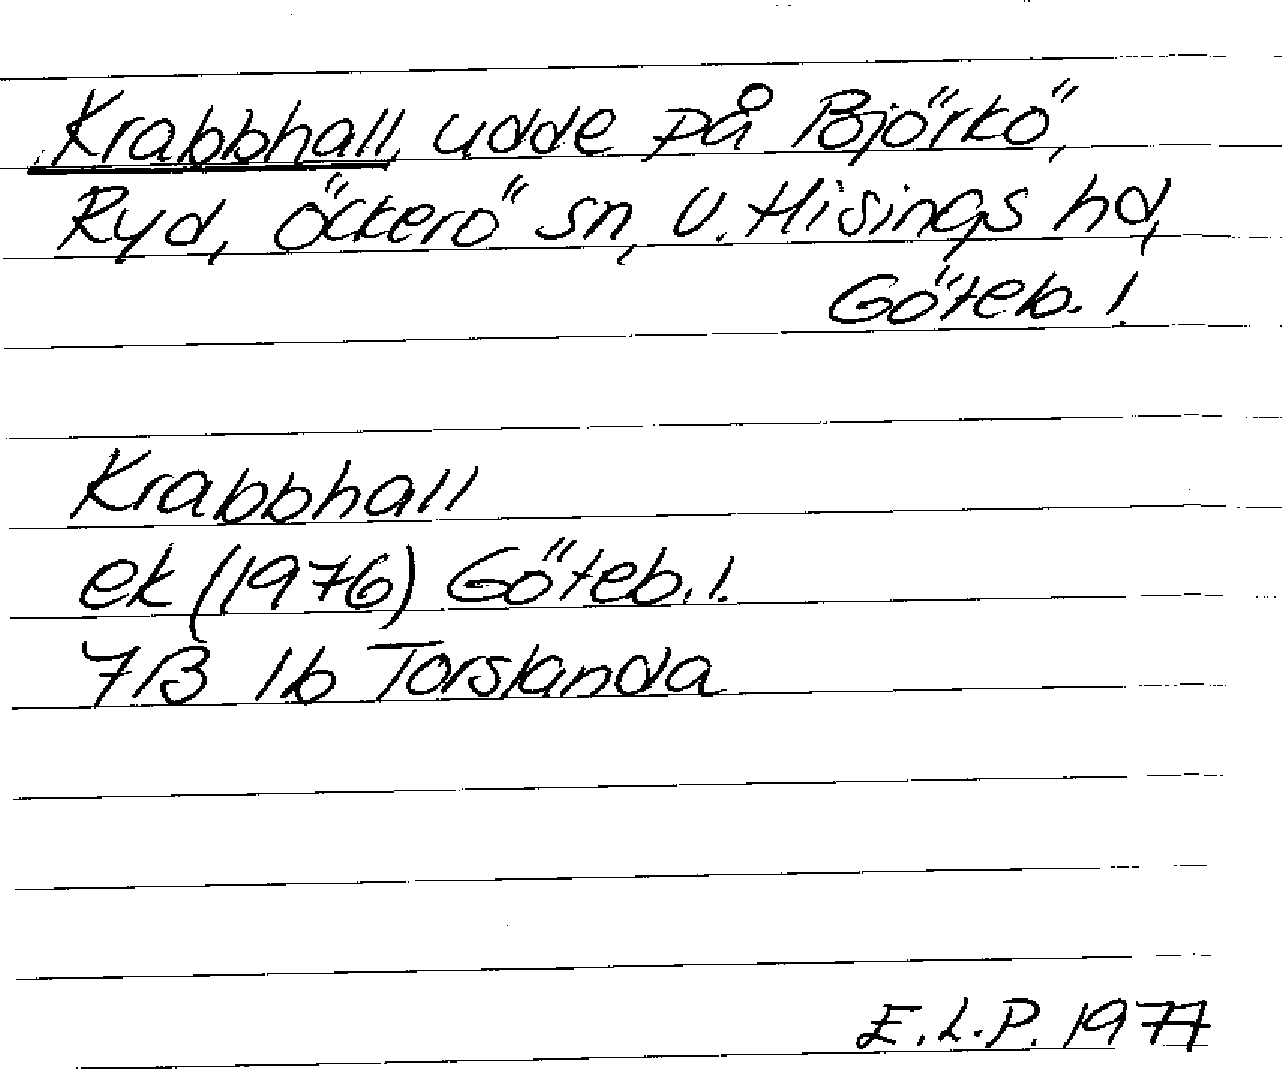 Krabbhall, udde på Björkö,
Ryd, Öckerö sn, V. Hisings hd,
Göteb. l.
Krabbhall
ek (1976) Göteb. l.
7B 1b Torslanda
E.L.P. 1977